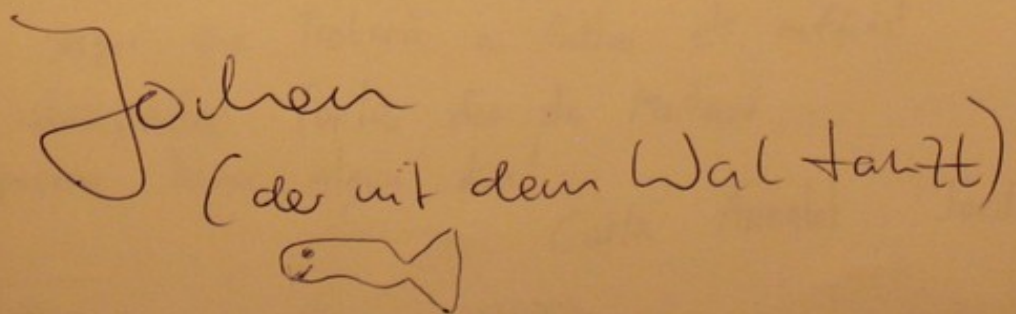 Jochen
(der mit dem Wal tanzt)